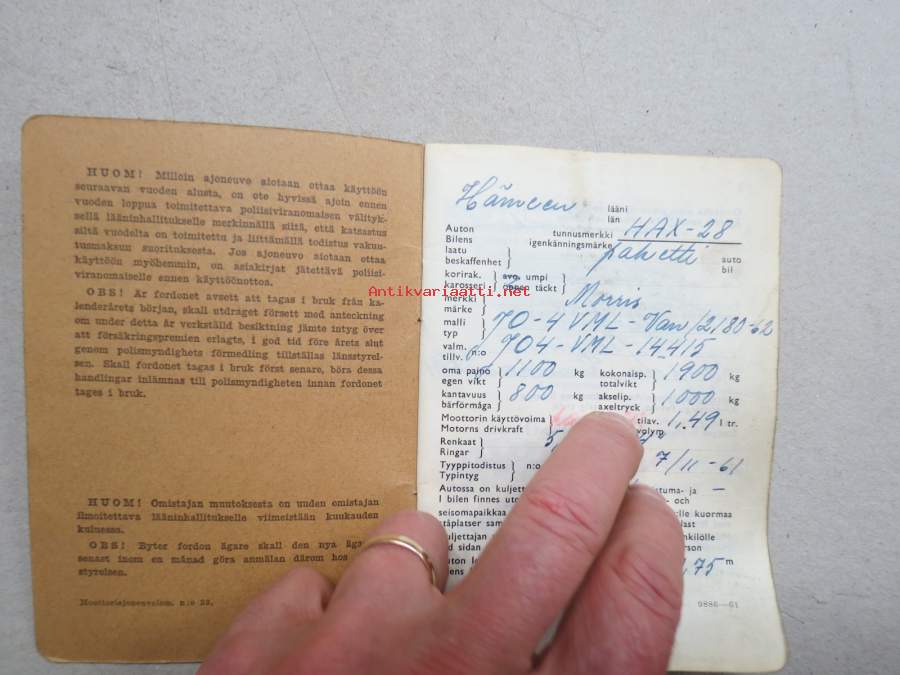 HUOM! Milloin ajoneuvo aiotaan ottaa käyttöön
seuraavan vuoden alusta, on ote hyvissä ajoin ennen
vuoden loppua toimitettava poliisiviranomaisen välityk-
sellä lääninhallitukselle merkinnällä siitä, että katsastus
siltä vuodelta on toimitettu ja liittämällä todistus vakuu-
tusmaksun suorituksesta. Jos ajoneuvo aiotaan ottaa
käyttöön myöhemmin, on asiakirjat jätettävä poliisi-
viranomaiselle ennen käyttöönottoa.
OBS! Är fordonet avsett att tagas i bruk från ka-
lenderårets början, skall utdraget försett med anteckning
om under detta år verkställd besiktning jämte intyg över
att försäkringspremien erlagts, i god tid före årets slut
genom polismyndighets förmedling tillställas länsstyrel-
sen. Skall fordonet tagas i bruk först senare, böra dessa
handlingar inlämnas till polismyndigheten innan fordonet
tages i bruk.
HUOM! Omistajan muutoksesta on uuden omistajan
ilmoitettava lääninhallitukselle viimeistään kuukauden
kuluessa.
OBS! Byter fordon ägare skall den nya ägar
senast inom en månad göra anmälan därom hos
styrelsen.
Moottoriajoneuvolom. n:o 22.
Hämeen lääni
län
Auton tunnusmerkki HAX-28
Bilens igenkänningsmärke
laatu paketti auto
beskaffenhet bil
korirak. avo. umpi
karosseri öppen täckt
Antikvariaatti.net
merkki Morris
märke
malli 70-4 VML-Van/2180-62
typ
valm. 704-VML-14415
tillv. n:o
oma paino 1100 kg kokonaisp. 1900 kg
egen vikt totalvikt
kantavuus 800 kg akselip. 1000 kg
bärförmåga axeltryck
Moottorin käyttövoima tilav. 1,49 l tr.
Motorns drivkraft volym
Renkaat 5
Ringar
Tyyppitodistus n:o 7/11-61
Typintyg
Autossa on kuljett tuma- ja –
I bilen finnes uto - och
seisomapaikkaa elle kuormaa
ståplatser sam last
uljettajan nkilölle
d sidan rson
uton l ,75 m
ens
9886—61